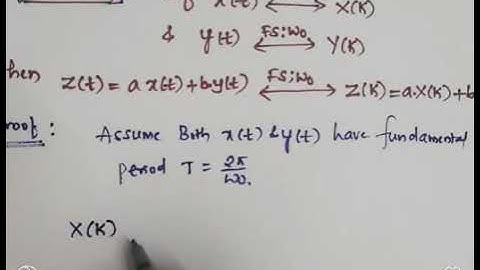 x(t) ⟷ X(K)
& y(t) ⟷ FS:W0 Y(K)
then Z(t) = a x(t) + b y(t) ⟷ FS:W0 Z(K) = a.X(K) + b
Proof: Assume Both x(t) & y(t) have fundamental
period T = 2π/W0.
X(K)